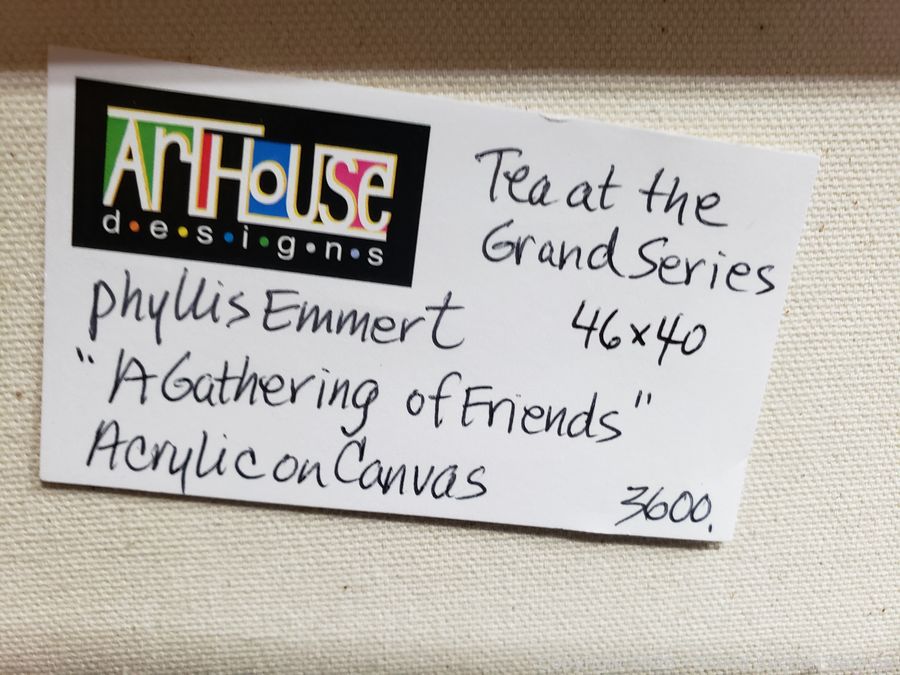 ArtHouse
d•e•s•i•g•n•s
Tea at the
Grand Series
46x40
phyllis Emmert
"A Gathering of Friends"
Acrylic on Canvas
3600.